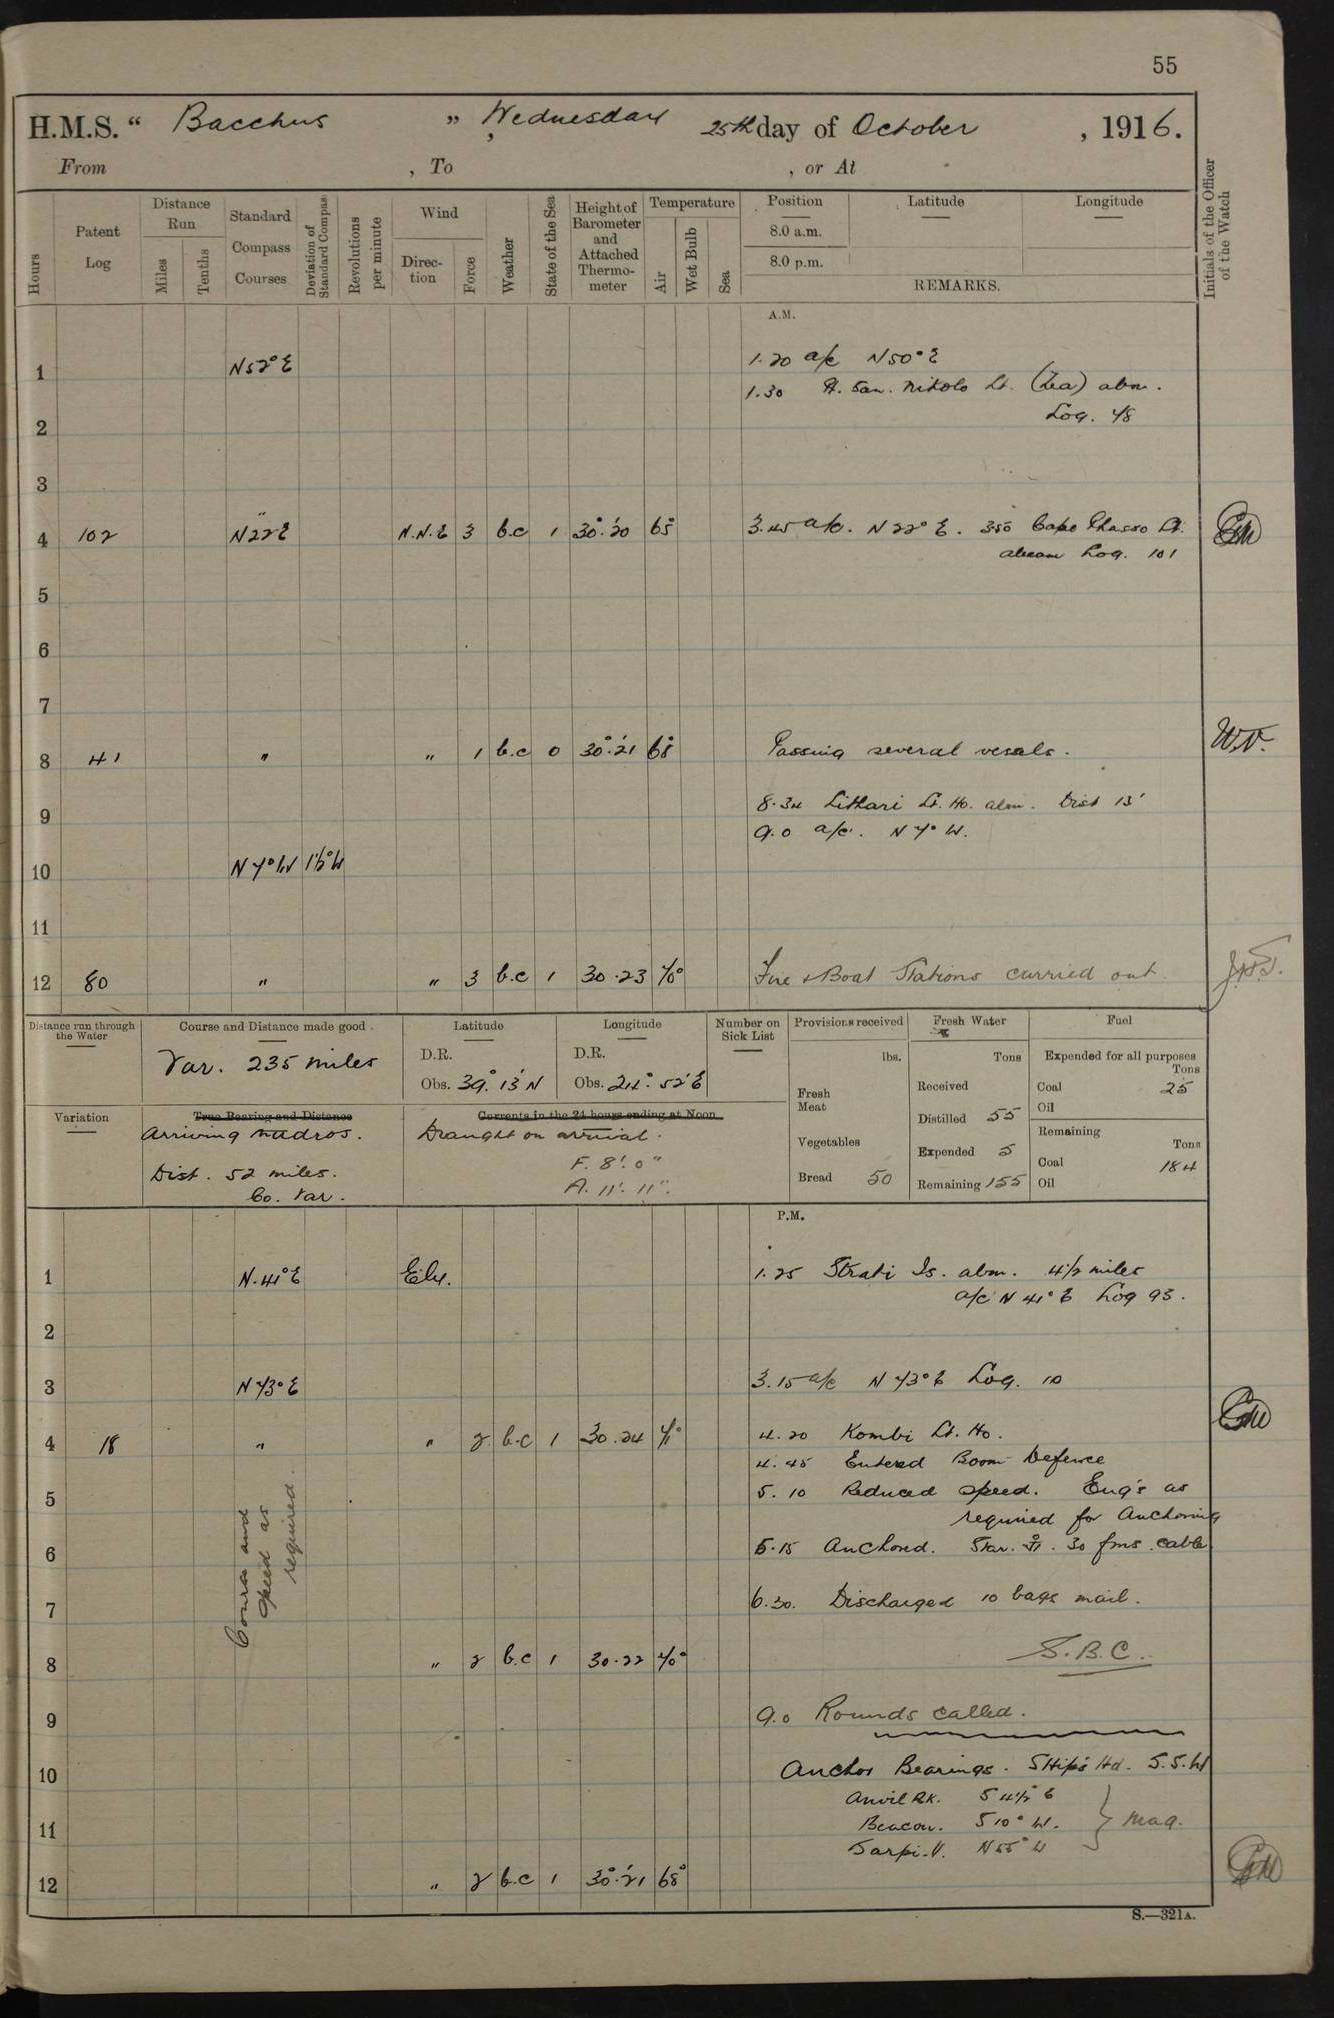 55
H.M.S. “ Bacchus ” , Wednesday 25th day of October , 1916.
From , To , or At
Hours
Patent Log
Distance Run
Miles
Tenths
Standard Compass Courses
Deviation of Standard Compass
Revolutions per minute
Wind
Direction
Force
Weather
State of the Sea
Height of Barometer and Attached Thermometer
Temperature
Air
Wet Bulb
Sea
Position
8.0 a.m.
8.0 p.m.
Latitude
Longitude
REMARKS.
Initials of the Officer of the Watch
A.M.
1 N52°E 1.20 a/c N50°E
1.30 San. Nikolo Lt. (Zea) abm.
2 Log. 48
3
4 102 N22E N.N.E 3 b.c 1 30°.20 65° 3.45 a/c. N22°E. 350 Cape Thasso Lt.
abeam Log. 101
5
6
7
8 41 " " 1 b.c 0 30°.21 68° Passing several vessels. W.V.
8.34 Lithari Lt. Ho. abm. Dist 13'
9
9.0 a/c. N7°W.
10 N7°W 1½°W
11
12 80 " " 3 b.c 1 30.23 70° Fire & Boat Stations carried out.
Distance run through the Water
Course and Distance made good
Var. 235 miles
Latitude
D.R.
Obs. 39° 13' N
Longitude
D.R.
Obs. 24° 52' E
Number on Sick List
Provisions received
lbs.
Fresh Meat
Vegetables
Bread 50
Fresh Water
Tons
Received
Distilled 55
Expended 5
Remaining 155
Fuel
Expended for all purposes
Tons
Coal 25
Oil
Remaining
Tons
Coal 184
Oil
Variation
True Bearing and Distance
Arriving Mudros.
Dist. 52 miles.
Co. Var.
Currents in the 24 hours ending at Noon
Draught on arrival.
F. 8'. 0"
A. 11'. 11".
P.M.
1 N.41°E Ely. 1.25 Strati Is. abm. 4½ miles
a/c N 41° E Log 93.
2
3 N73°E 3.15 a/c N 73° E Log. 10
4 18 " " 2 b.c 1 30.24 71° 4.20 Kombi Lt. Ho.
4.45 Entered Boom Defence
5 5.10 Reduced speed. Eng's as
required for Anchoring
6 5.15 Anchored. Star. 30 fms. cable
Course and speed as required
7 6.30. Discharged 10 bags mail.
8 " 2 b.c 1 30.22 70° S.B.C.
9 9.0 Rounds called.
10 Anchor Bearings. Ship's Hd. S.S.W
Anvil Rk. S 47° E
11 Beacon. S 10° W. } mag.
Sarpi. V. N55°W
12 " 2 b.c 1 30°.21 68°
S.—321A.